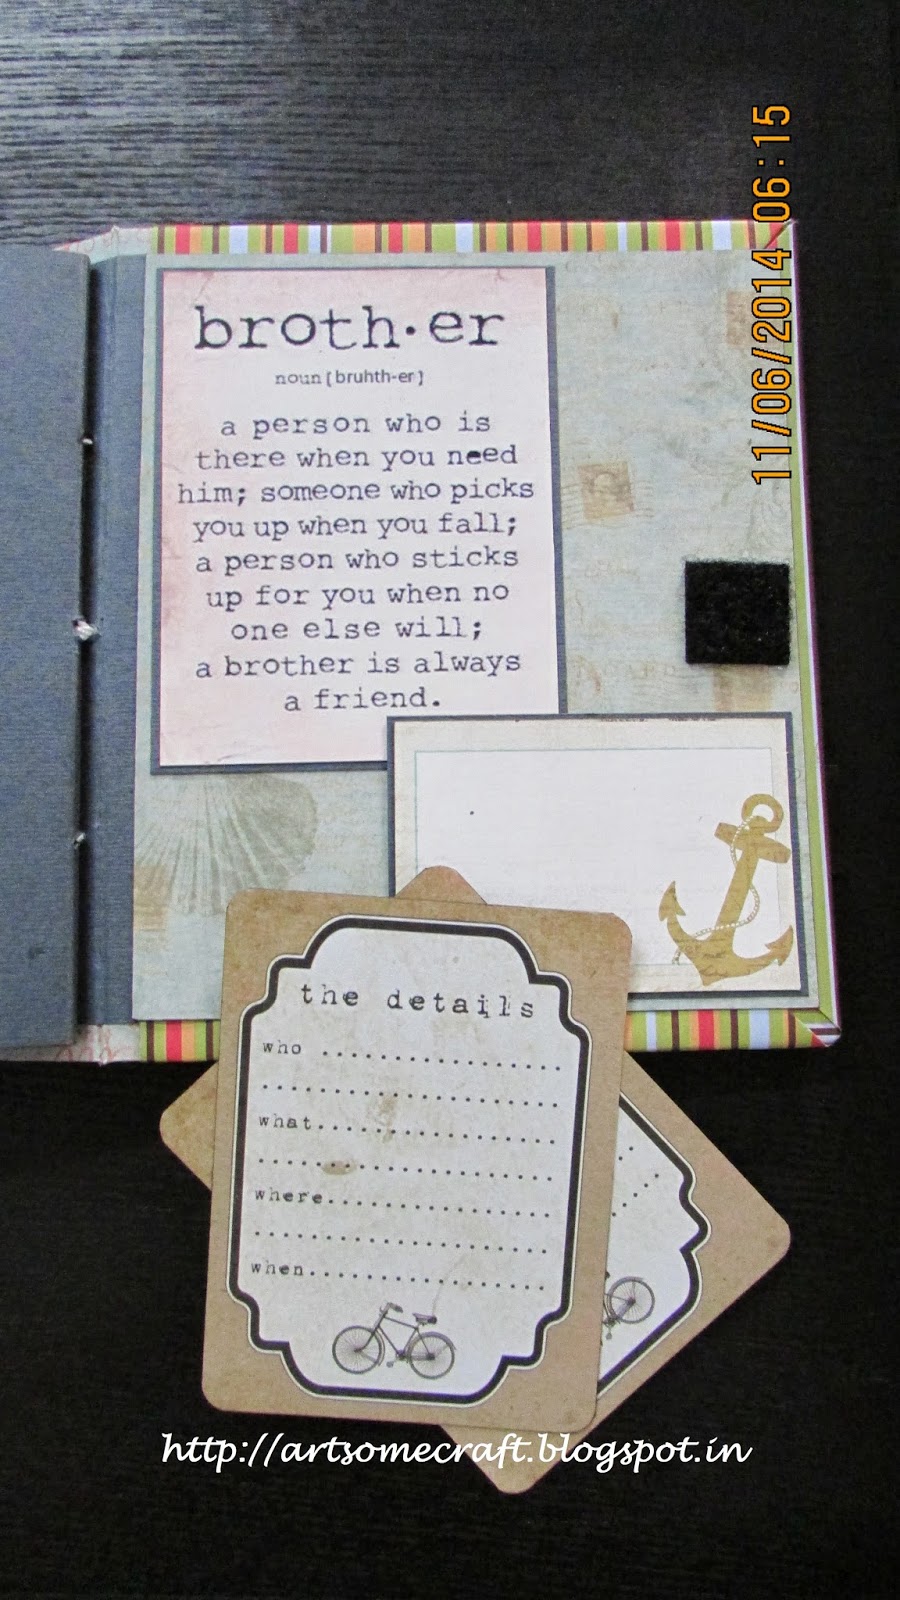 11/06/2014 06:15
broth·er
noun [ bruhth-er ]
a person who is
there when you need
him; someone who picks
you up when you fall;
a person who sticks
up for you when no
one else will;
a brother is always
a friend.
the details
who ....................
.....................
what..................
.....................
where................
.....................
when..................
http://artsomecraft.blogspot.in